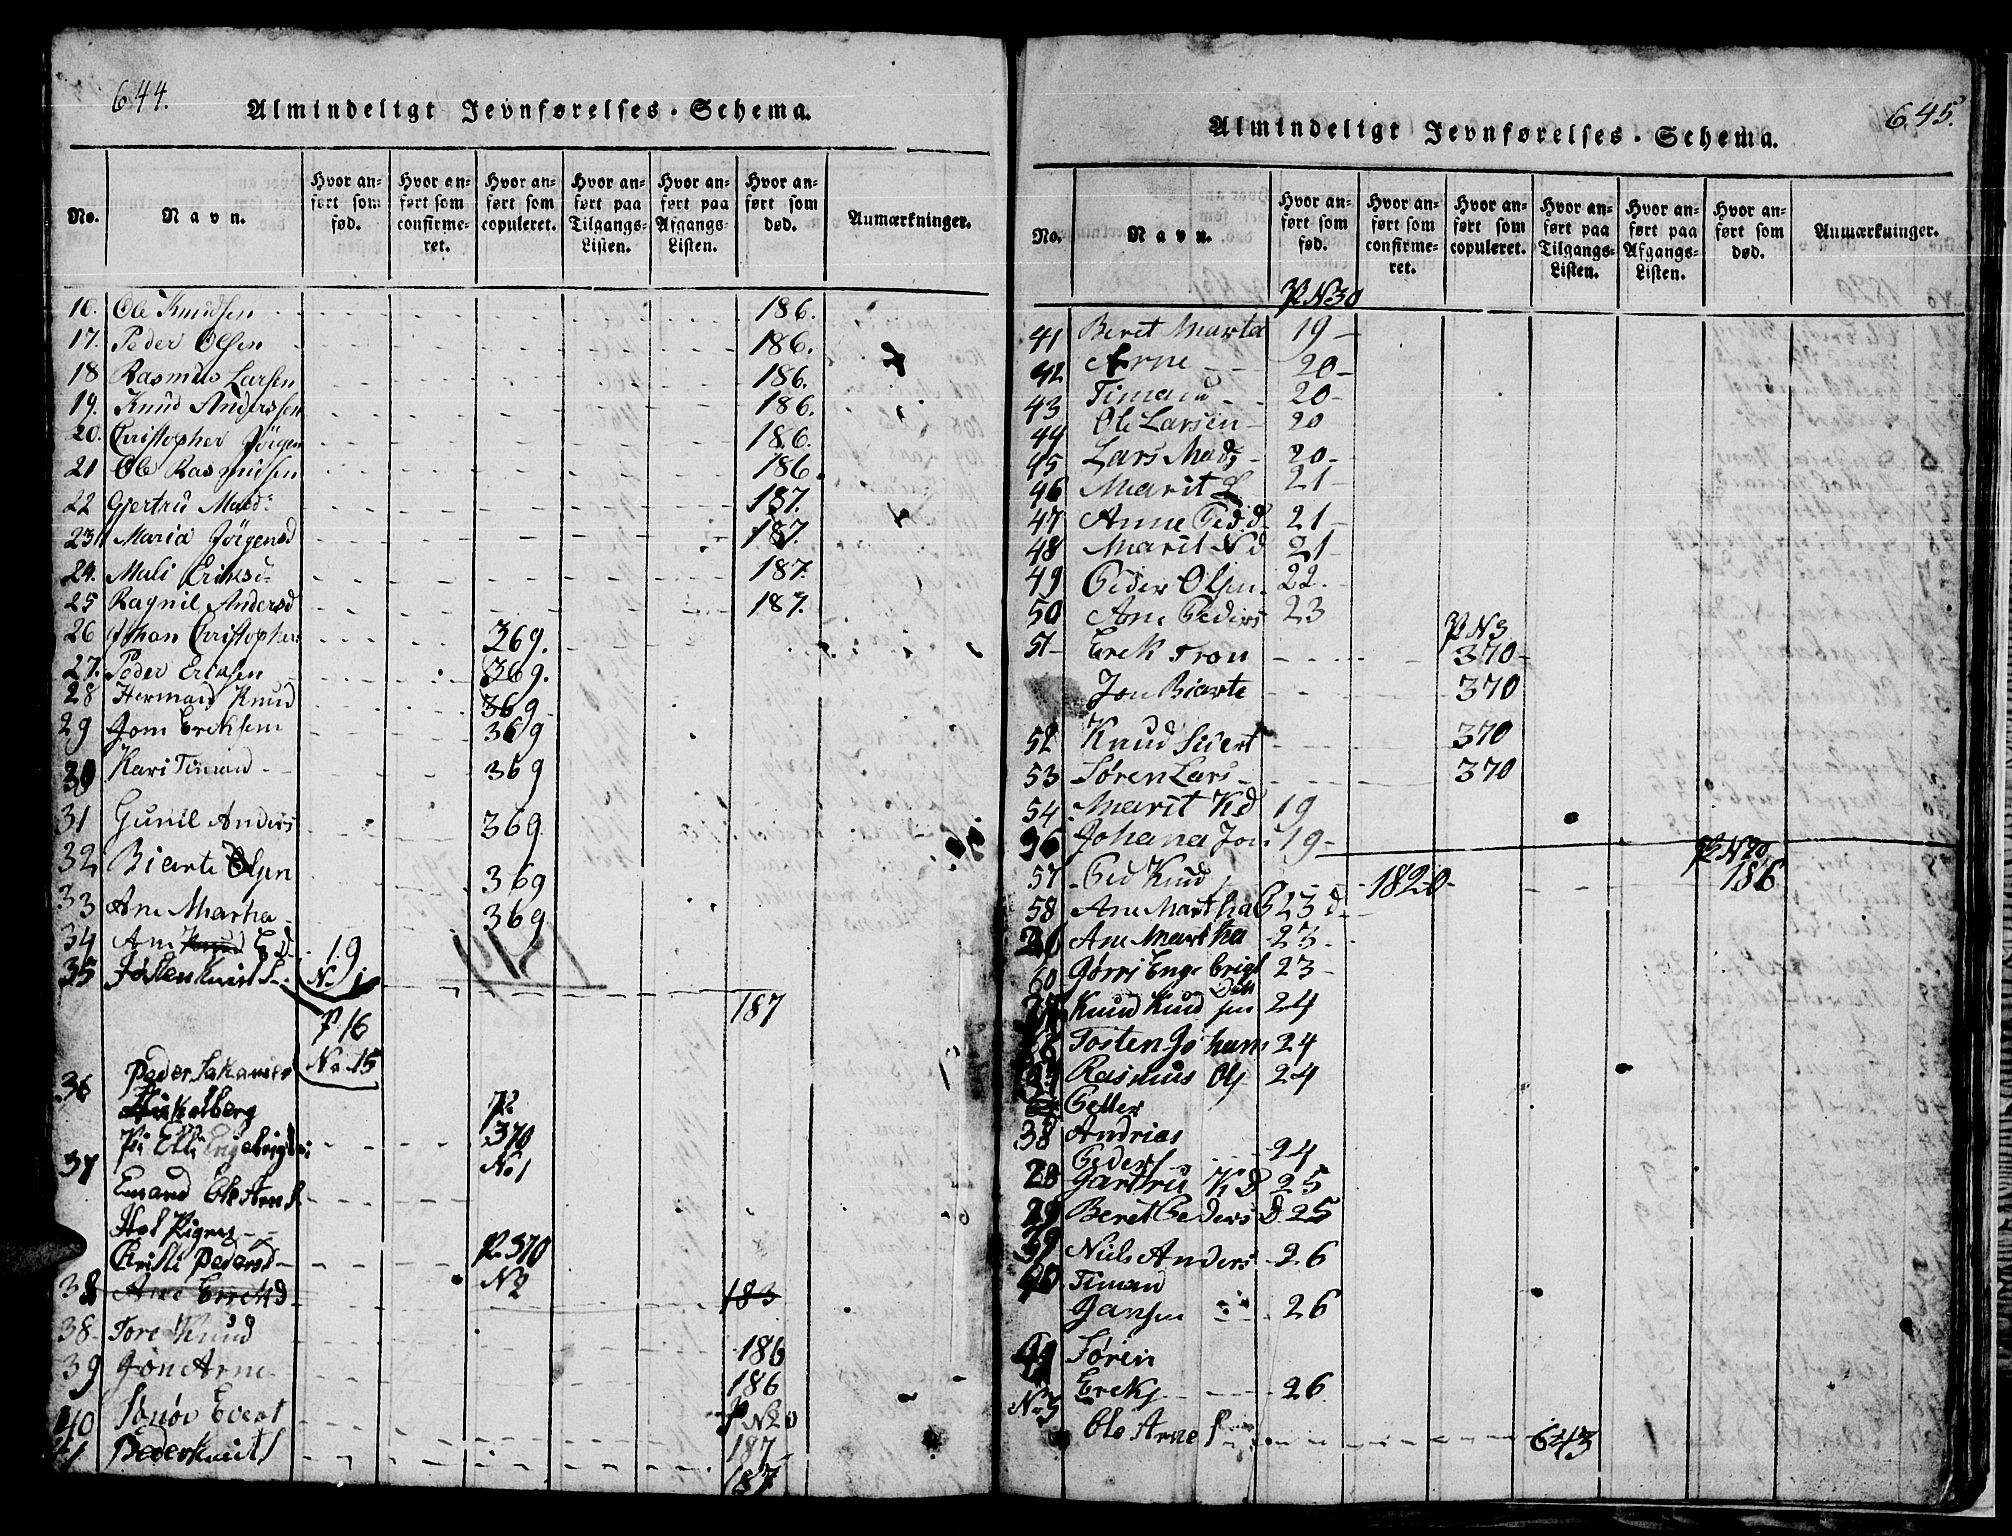 644.
Almindeligt Jevnførelses-Schema.
No.
Navn.
Hvor anført som fød.
Hvor anført som confirmeret.
Hvor anført som copuleret.
Hvor anført paa Tilgangs-Listen.
Hvor anført paa Afgangs-Listen.
Hvor anført som død.
Anmærkninger.
16. Ole Knudsen 186.
17. Peder Olsen 186.
18 Rasmus Larsen 186.
19. Knud Anderssen 186.
20. Christopher Jörgen 186.
21 Ole Rasmusen 186.
22 Gjertru Mad: 187.
23 Maria Jörgensd 187.
24. Mali Eriksd: 187.
25 Ragnil Andersd 187.
26 Johan Christophers 369.
27. Peder Eriksen 369.
28 Herman Knud 369
29 Jom Ereksen 369
30 Kari Timand 369
31 Gunil Anders 369.
32 Biarte Olsen 369
33 Ane Martha 369
34 Ane Knud E d 19
35 Josten Knut S. N. 1 187
P 16
36 Peder Sakaries No 15
Hukelberg P
Pi Elli Engebrigtsi 370
37 No 1
Emand Ole Arn S.
Hol Pigen
Christi Pedersd P. 370
38 Ane Erreksd N 2 183
38 Tore Knud 186
39 Jon Arne 186
40 Sonöv Evert P N20
41 Peder Knut S 187
187
645.
Almindeligt Jevnførelses-Schema.
No.
Navn.
Hvor anført som fød.
Hvor anført som confirmeret.
Hvor anført som copuleret.
Hvor anført paa Tilgangs-Listen.
Hvor anført paa Afgangs-Listen.
Hvor anført som død.
Anmærkninger.
P N 30
41 Beret Marta 19
42 Arne 20
43 Timand 20
44 Ole Larsen 20
45 Lars Mads 20
46 Marit L 21
47 Anne Ped. d. 21
48 Marit N d 21
49 Peder Olsen 22.
50 Ane Peders 23
P N3
51 Erek Tron 370
Jon Biarte 370
52 Knud Sivert 370
53 Søren Lars 370
54 Marit K d 19
56 Johana Jon 19
P N 20
57 Ped Knud 1820 186
58 Ane Martha P 23 d
Ane Martha 23
60 Gørri Engebrigt 23
Datt
Knud Knud sen 24
Tosten Johans 24
Rasmus Ols 24
Petter
38 Andrias
Peders 24
28 Gartru K D 25
29 Beret Peders D. 25
39 Niels Anders 26
40 Timand
Jansen 26
41 Søren
Ereks 26
No 3
Ole Arne S 643